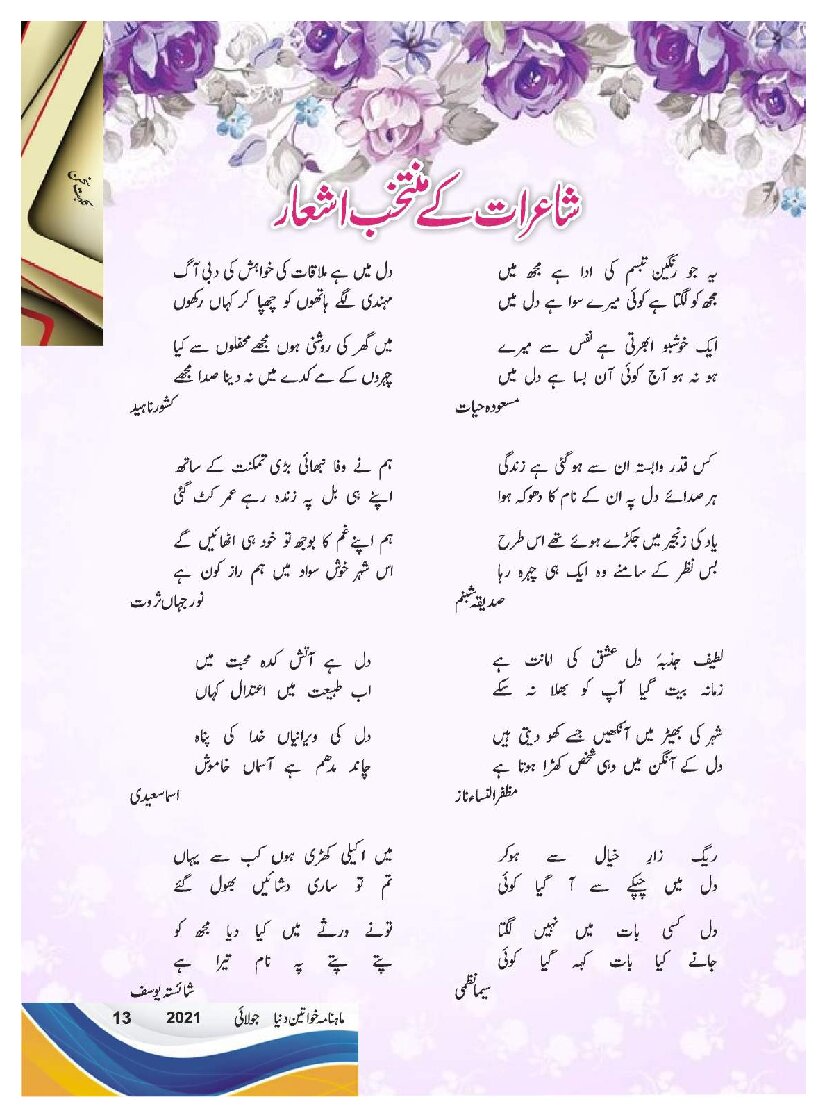 نکہت سخن
شاعرات کے منتخب اشعار
یہ جو رنگین تبسم کی ادا ہے مجھ میں
مجھ کو لگتا ہے کوئی میرے سوا ہے دل میں
ایک خوشبو ابھرتی ہے نفس سے میرے
ہو نہ ہو آج کوئی آن بسا ہے دل میں
مسعودہ حیات
کس قدر وابستہ ان سے ہوگئی ہے زندگی
ہر صدائے دل پہ ان کے نام کا دھوکہ ہوا
یاد کی زنجیر میں جکڑے ہوئے تھے اس طرح
بس نظر کے سامنے وہ ایک ہی چہرہ رہا
صدیقہ شبنم
لطیف جذبۂ دل عشق کی امانت ہے
زمانہ بیت گیا آپ کو بھلا نہ سکے
شہر کی بھیڑ میں آنکھیں جسے کھو دیتی ہیں
دل کے آنگن میں وہی شخص کھڑا ہوتا ہے
مظفر النساء ناز
ریگ زار خیال سے ہوکر
دل میں چپکے سے آ گیا کوئی
دل کسی بات میں نہیں لگتا
جانے کیا بات کہہ گیا کوئی
سیما نظمی
دل میں ہے ملاقات کی خواہش کی دبی آگ
مہندی لگے ہاتھوں کو چھپا کر کہاں رکھوں
میں گھر کی روشنی ہوں مجھے محفلوں سے کیا
چہروں کے مے کدے میں نہ دینا صدا مجھے
کشور ناہید
ہم نے وفا نبھائی بڑی تمکنت کے ساتھ
اپنے ہی بل پہ زندہ رہے عمر کٹ گئی
ہم اپنے غم کا بوجھ تو خود ہی اٹھائیں گے
اس شہر خوش سواد میں ہم راز کون ہے
نور جہاں ثروت
دل ہے آتش کدہ محبت میں
اب طبیعت میں اعتدال کہاں
دل کی ویرانیاں خدا کی پناہ
چاند مدھم ہے آسماں خاموش
اسما سعیدی
میں اکیلی کھڑی ہوں کب سے یہاں
تم تو ساری دشائیں بھول گئے
تونے ورثے میں کیا دیا مجھ کو
پتے پتے پہ نام تیرا ہے
شائستہ یوسف
ماہنامہ خواتین دنیا جولائی 2021 13